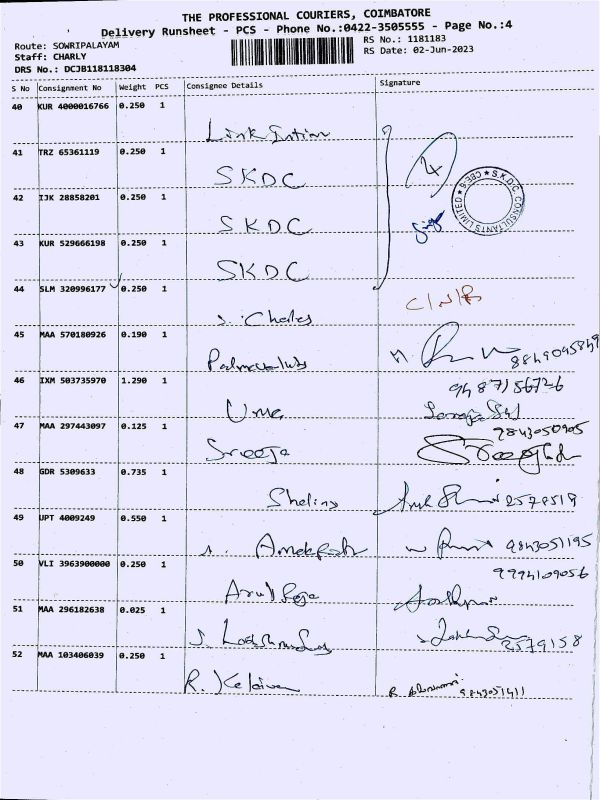 THE PROFESSIONAL COURIERS, COIMBATORE
Delivery Runsheet - PCS - Phone No.:0422-3505555 - Page No.:4
Route: SOWRIPALAYAM
RS No.: 1181183
Staff: CHARLY
RS Date: 02-Jun-2023
DRS No.: DCJB118118304
S No Consignment No Weight PCS Consignee Details Signature
40 KUR 4000016766 0.250 1
Link Intime
41 TRZ 65361119 0.250 1
SKDC
42 IJK 28858201 0.250 1
SKDC
S.K.D.C. CONSULTANTS LIMITED
43 KUR 529666198 0.250 1
SKDC
44 SLM 320996177 0.250 1
S. Charles
45 MAA 570180926 0.190 1
46 IXM 503735970 1.290 1
9487156726
Uma
47 MAA 297443097 0.125 1
9843050905
Sreeja
48 GDR 5309633 0.735 1
49 UPT 4009249 0.550 1
9843051195
50 VLI 3963900000 0.250 1
9994109056
51 MAA 296182638 0.025 1
2579158
52 MAA 103406039 0.250 1
R.